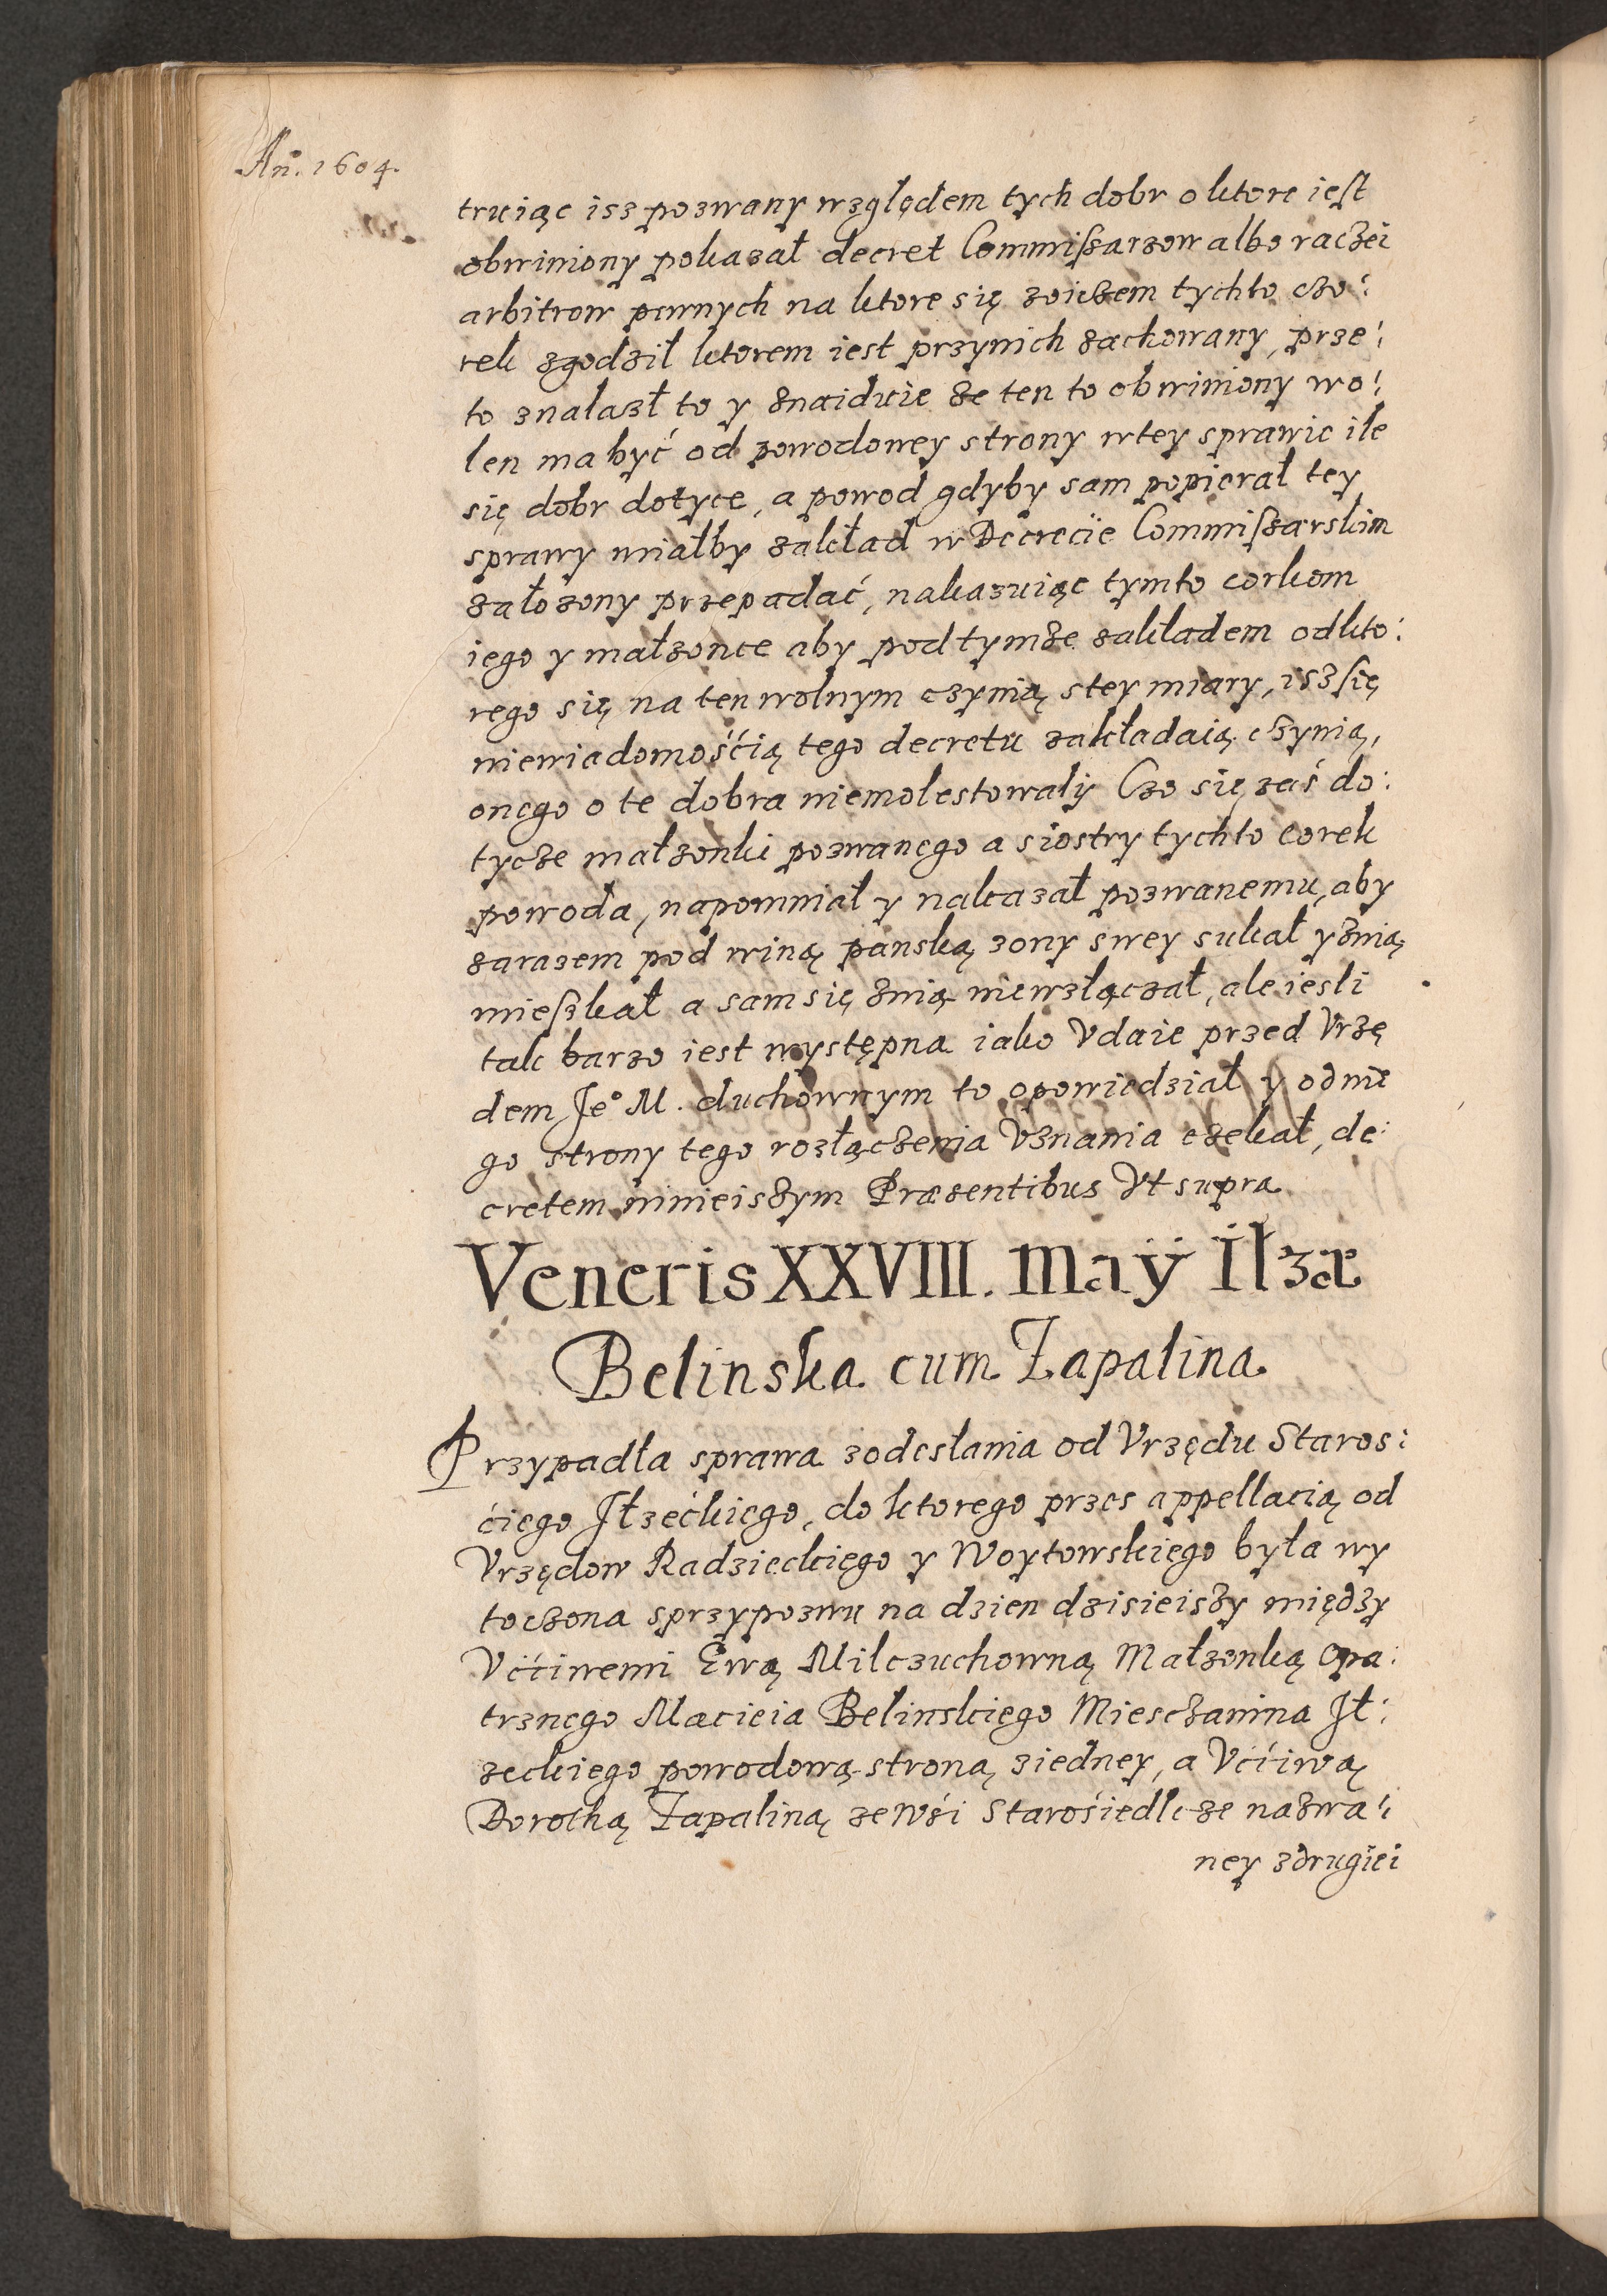 Añ. 1604.
truiąc isz pozwany względem tych dobr o ktore iest
obwiniony pokazał decret Commissarzow albo raczei
arbitrow pewnych na ktore się zoiczem tychto czo:
rek zgodził ktorem iest przynich zachowany, prze:
to znalazł to y znaiduie że ten to obwiniony wo:
len ma być od powodowey strony wtey sprawie ile
się dobr dotyce, a powod gdyby sam popierał tey
sprawy miałby zakład w Decrecie Commissarskim
założony przepadać, nakazuiąc tymto corkom
iego y małzonce aby pod tymże zakładem odkto:
rego się na ten wolnym czynią stey miary, isz się
niewiadomośćią tego decretu zakładaią czynią,
onego o te dobra niemolestowały Czo się zaś do:
tycze małzonki pozwanego a siostry tychto corek
powoda, napomniał y nakazał pozwanemu, aby
zarazem pod winą panską zony swey sukał y znią
mieszkał a sam się znią niewzłączał, ale iesli
tak barzo iest występna iako Vdaie przed Vrzę
dem Je° M. duchownym to opowiedział y odnie
go strony tego rozłączenia Vznania czekał, de:
cretem ninieiszym Præsentibus Vt supra
Veneris XXVIII. Maÿ Ilzæ
Belinska cum Zapalina
Przypadła sprawa zodesłania od Vrzędu Staros:
ćiego Jłzećkiego, do ktorego przes appellacią od
Vrzędow Radzieckiego y Woytowskiego była wy
toczona sprzypozwu na dzien dzisieiszy między
Vććiwemi Ewą Milczuchowną Małzonką Opa:
trznego Macieia Belinskiego Mieszczanina Jł:
zeckiego powodową stroną ziedney, a Vććiwą
Dorothą Zapaliną ze Wśi Starośiedlcze nazwa:
ney zdrugiei